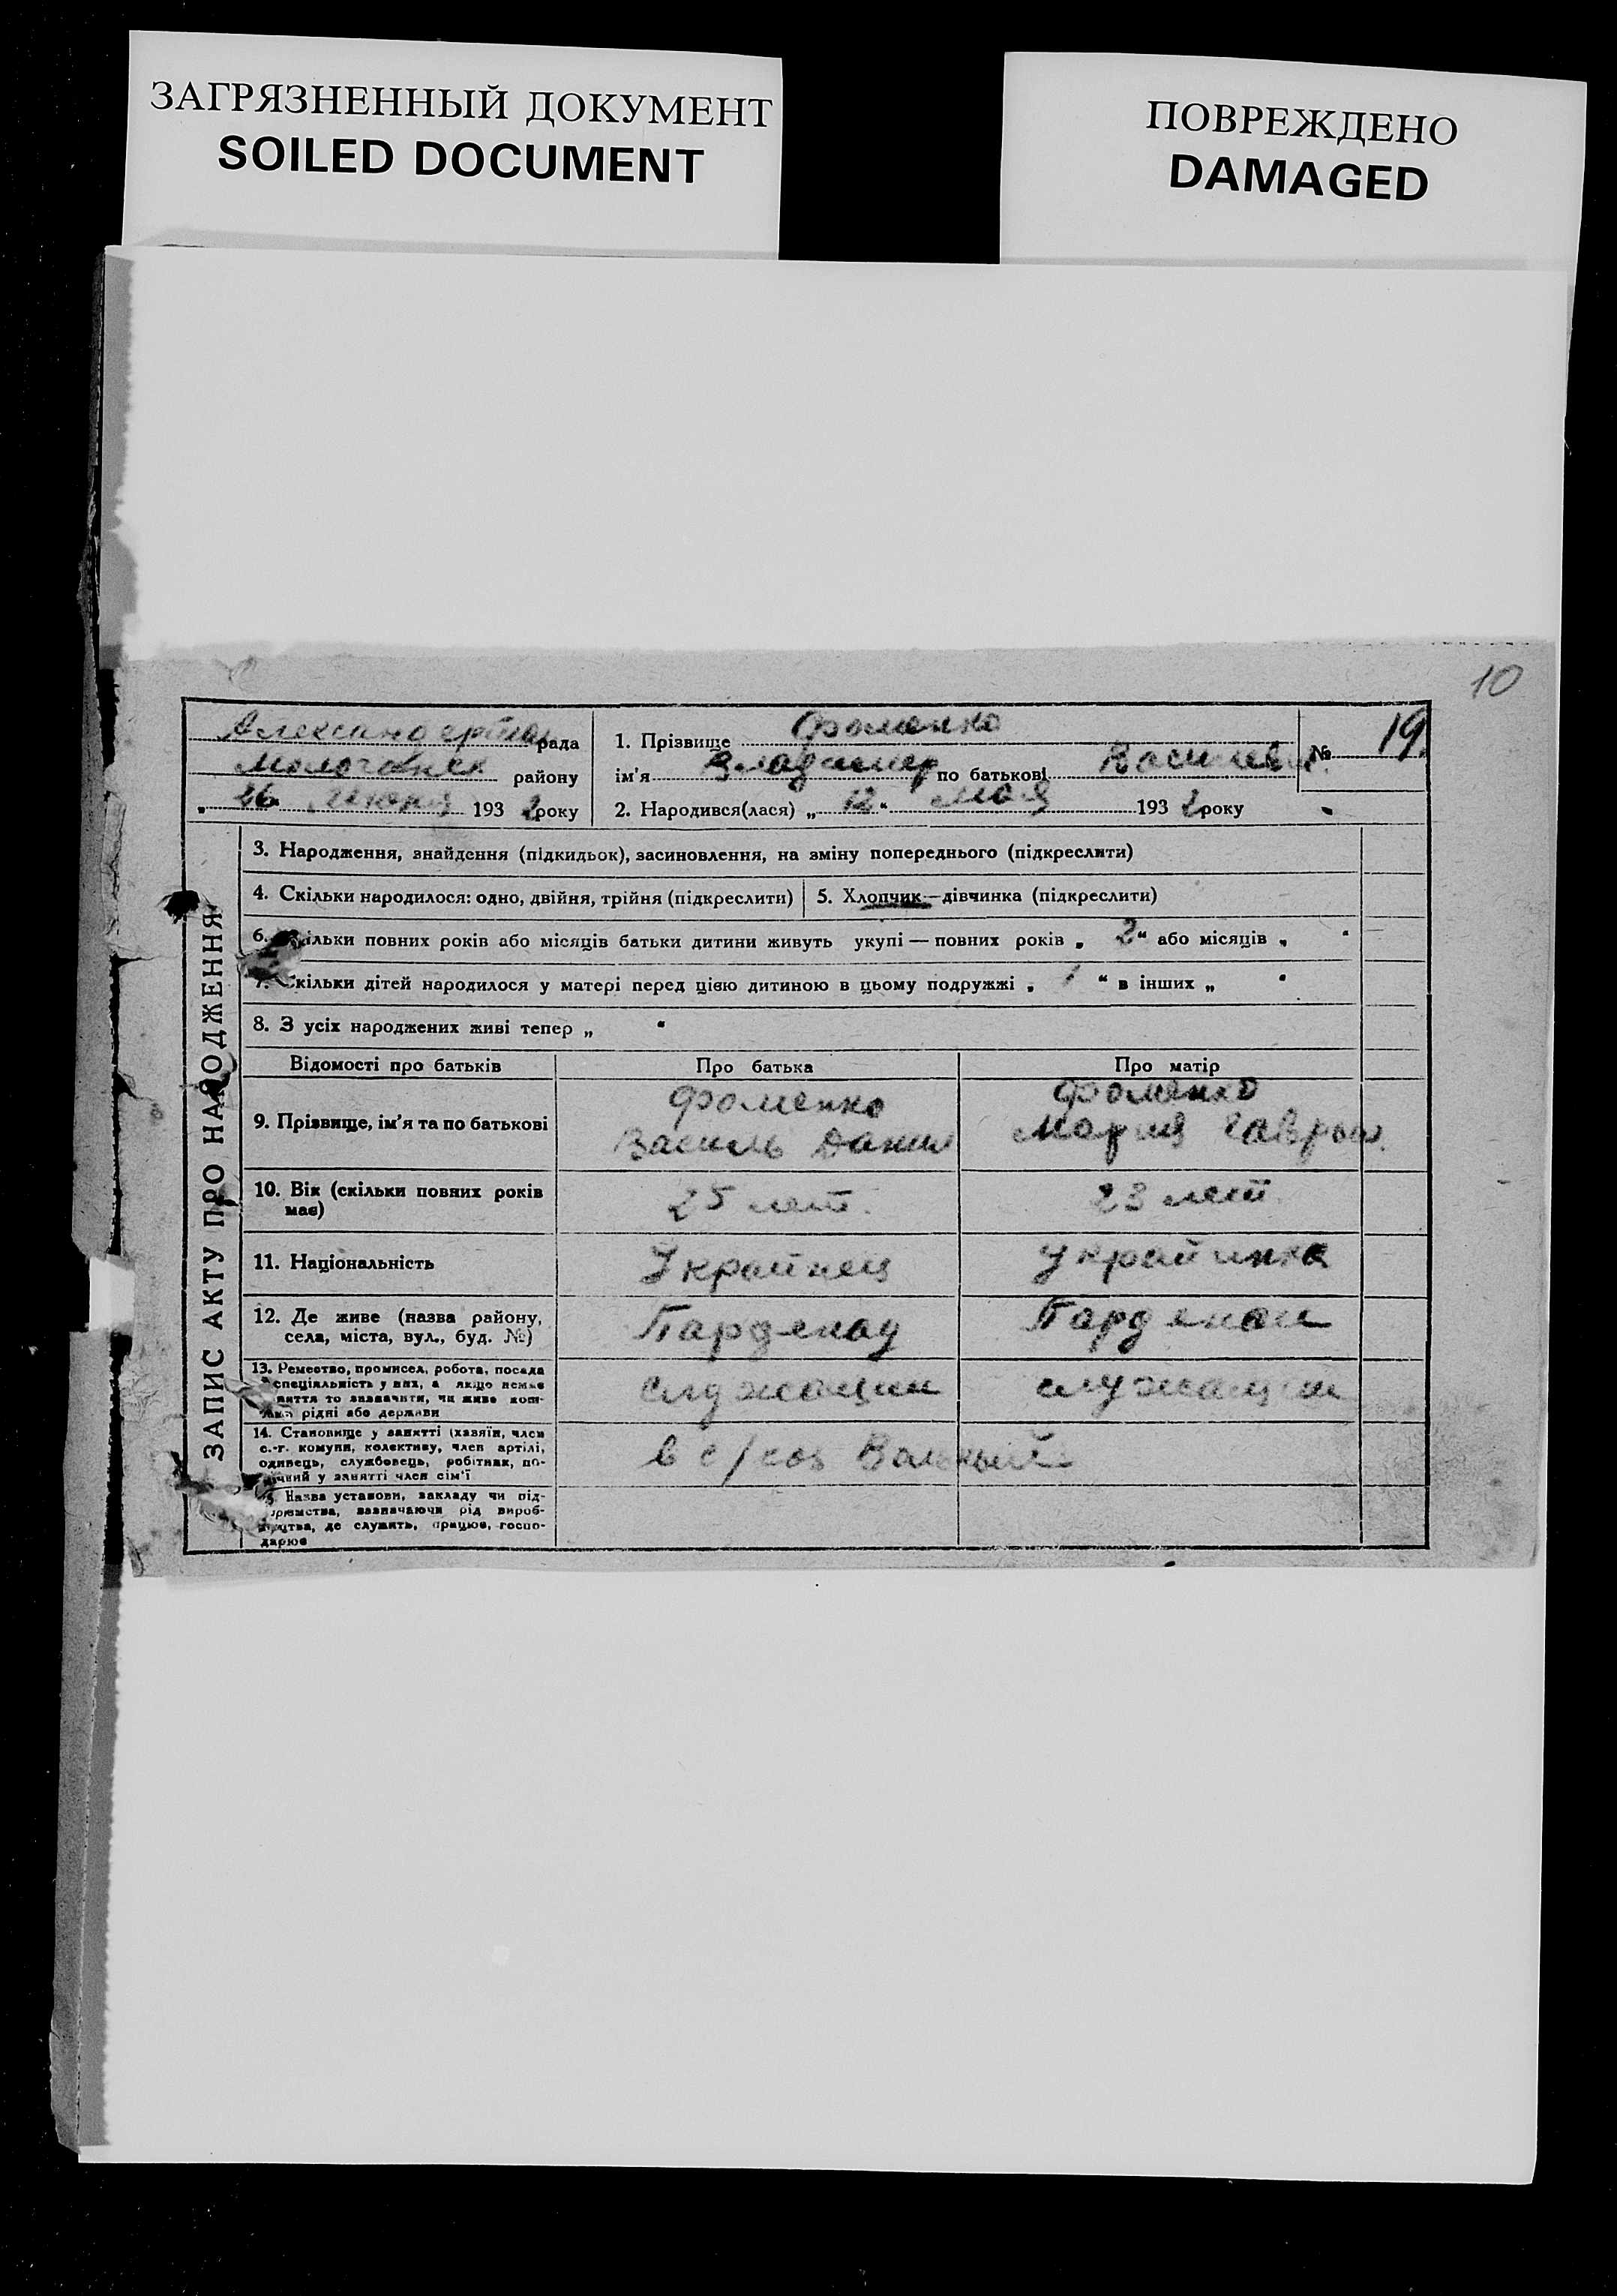 ЗАГРЯЗНЕННЫЙ ДОКУМЕНТ
SOILED DOCUMENT
ПОВРЕЖДЕНО
DAMAGED
10
рада
Молочанск району
„ 26 Июня 193 2 року
1. Прізвище Фоменко
ім'я Владимер по батькові Василев
№ 19
2. Народився(лася) „ 12 " мая 193 2 року
ЗАПИС АКТУ ПРО НАРОДЖЕННЯ
3. Народження, знайдення (підкидьок), засиновлення, на зміну попереднього (підкреслити)
4. Скільки народилося: одно, двійня, трійня (підкреслити)
5. Хлопчик—дівчинка (підкреслити)
6. Скільки повних років або місяців батьки дитини живуть укупі — повних років „ 2 " або місяців „ "
7. Скільки дітей народилося у матері перед цією дитиною в цьому подружжі „ 1 " в інших „ "
8. З усіх народжених живі тепер „ "
Відомості про батьків
Про батька
Про матір
9. Прізвище, ім'я та по батькові
Фоменко
Василь Данил
Фоменко
Мария Гаврил.
10. Вік (скільки повних років має)
25 лет.
23 лет.
11. Національність
Украйнец
Украйинка
12. Де живе (назва району,
села, міста, вул., буд. №)
Гарденау
Гарденау
13. Ремество, промисел, робота, посада
спеціяльність у них, а якщо немає
заняття то зазначити, чи живе кош-
тами рідні або держави
служащии
служащии
14. Становище у занятті (хазяїн, член
с.-г. комуни, колективу, член артілі,
одинець, службовець, робітник, по-
мічний у занятті член сім'ї
в с/соз
15. Назва установи, закладу чи під-
приємства, зазначаючи рід вироб-
ництва, де служить, працює, госпо-
дарює